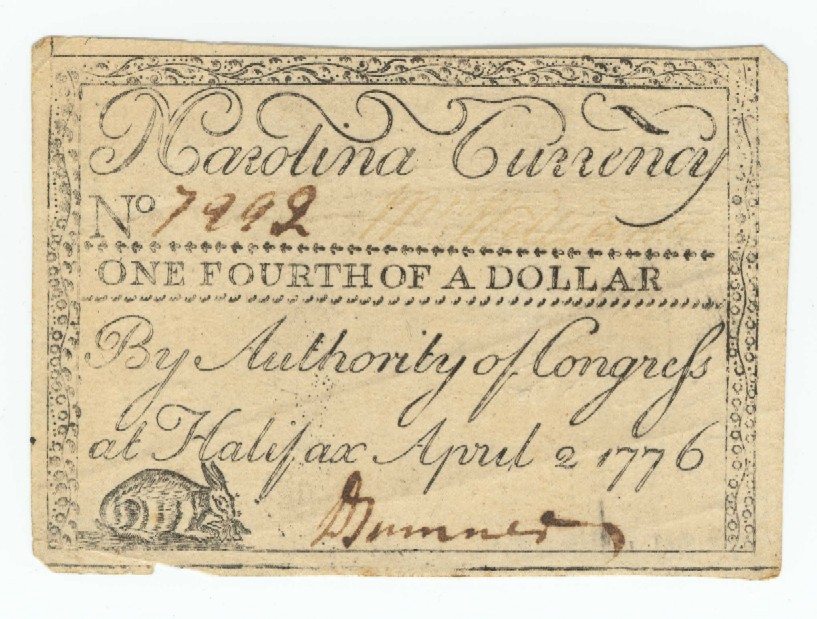 N Carolina Currency
No 7992
ONE FOURTH OF A DOLLAR
By Authority of Congress
at Halifax April 2 1776
Sumner